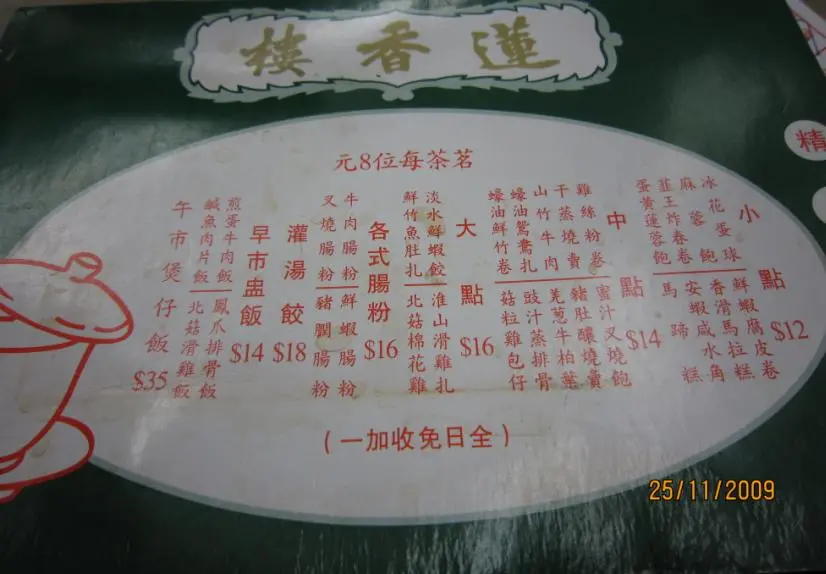 蓮香樓
茗茶每位8元
小點 $12
冰花蛋球
麻蓉飽
韮王炸春卷
蛋黃蓮蓉飽
鮮蝦腐皮卷
香滑馬拉糕
安蝦咸水角
馬蹄糕
中點 $14
雞絲粉卷
干蒸燒賣
山竹牛肉
蠔油鴛鴦扎
蠔油鮮竹卷
蜜汁叉燒飽
豬肚釀燒賣
羌蔥牛柏葉
豉汁蒸排骨
菇粒雞包仔
大點 $16
淡水鮮蝦餃
鮮竹魚肚扎
淮山滑雞扎
北菇棉花雞
各式腸粉 $16
牛肉腸粉
叉燒腸粉
鮮蝦腸粉
豬膶腸粉
灌湯餃 $18
早市盅飯 $14
煎蛋牛肉飯
鹹魚肉片飯
鳳爪排骨飯
北菇滑雞飯
午市煲仔飯 $35
(全日免收加一)
精
25/11/2009